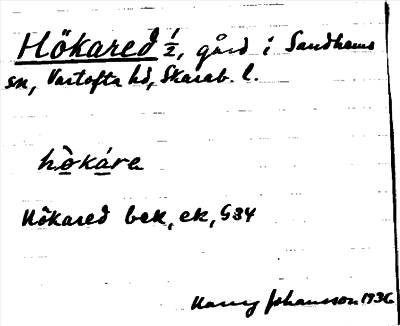 Hökared ½, gård i Sandhems
sn, Vartofta hd, Skarab. l.
hò̱ká̱re
Hökared bek, ek, G34
Harry Johansson 1936